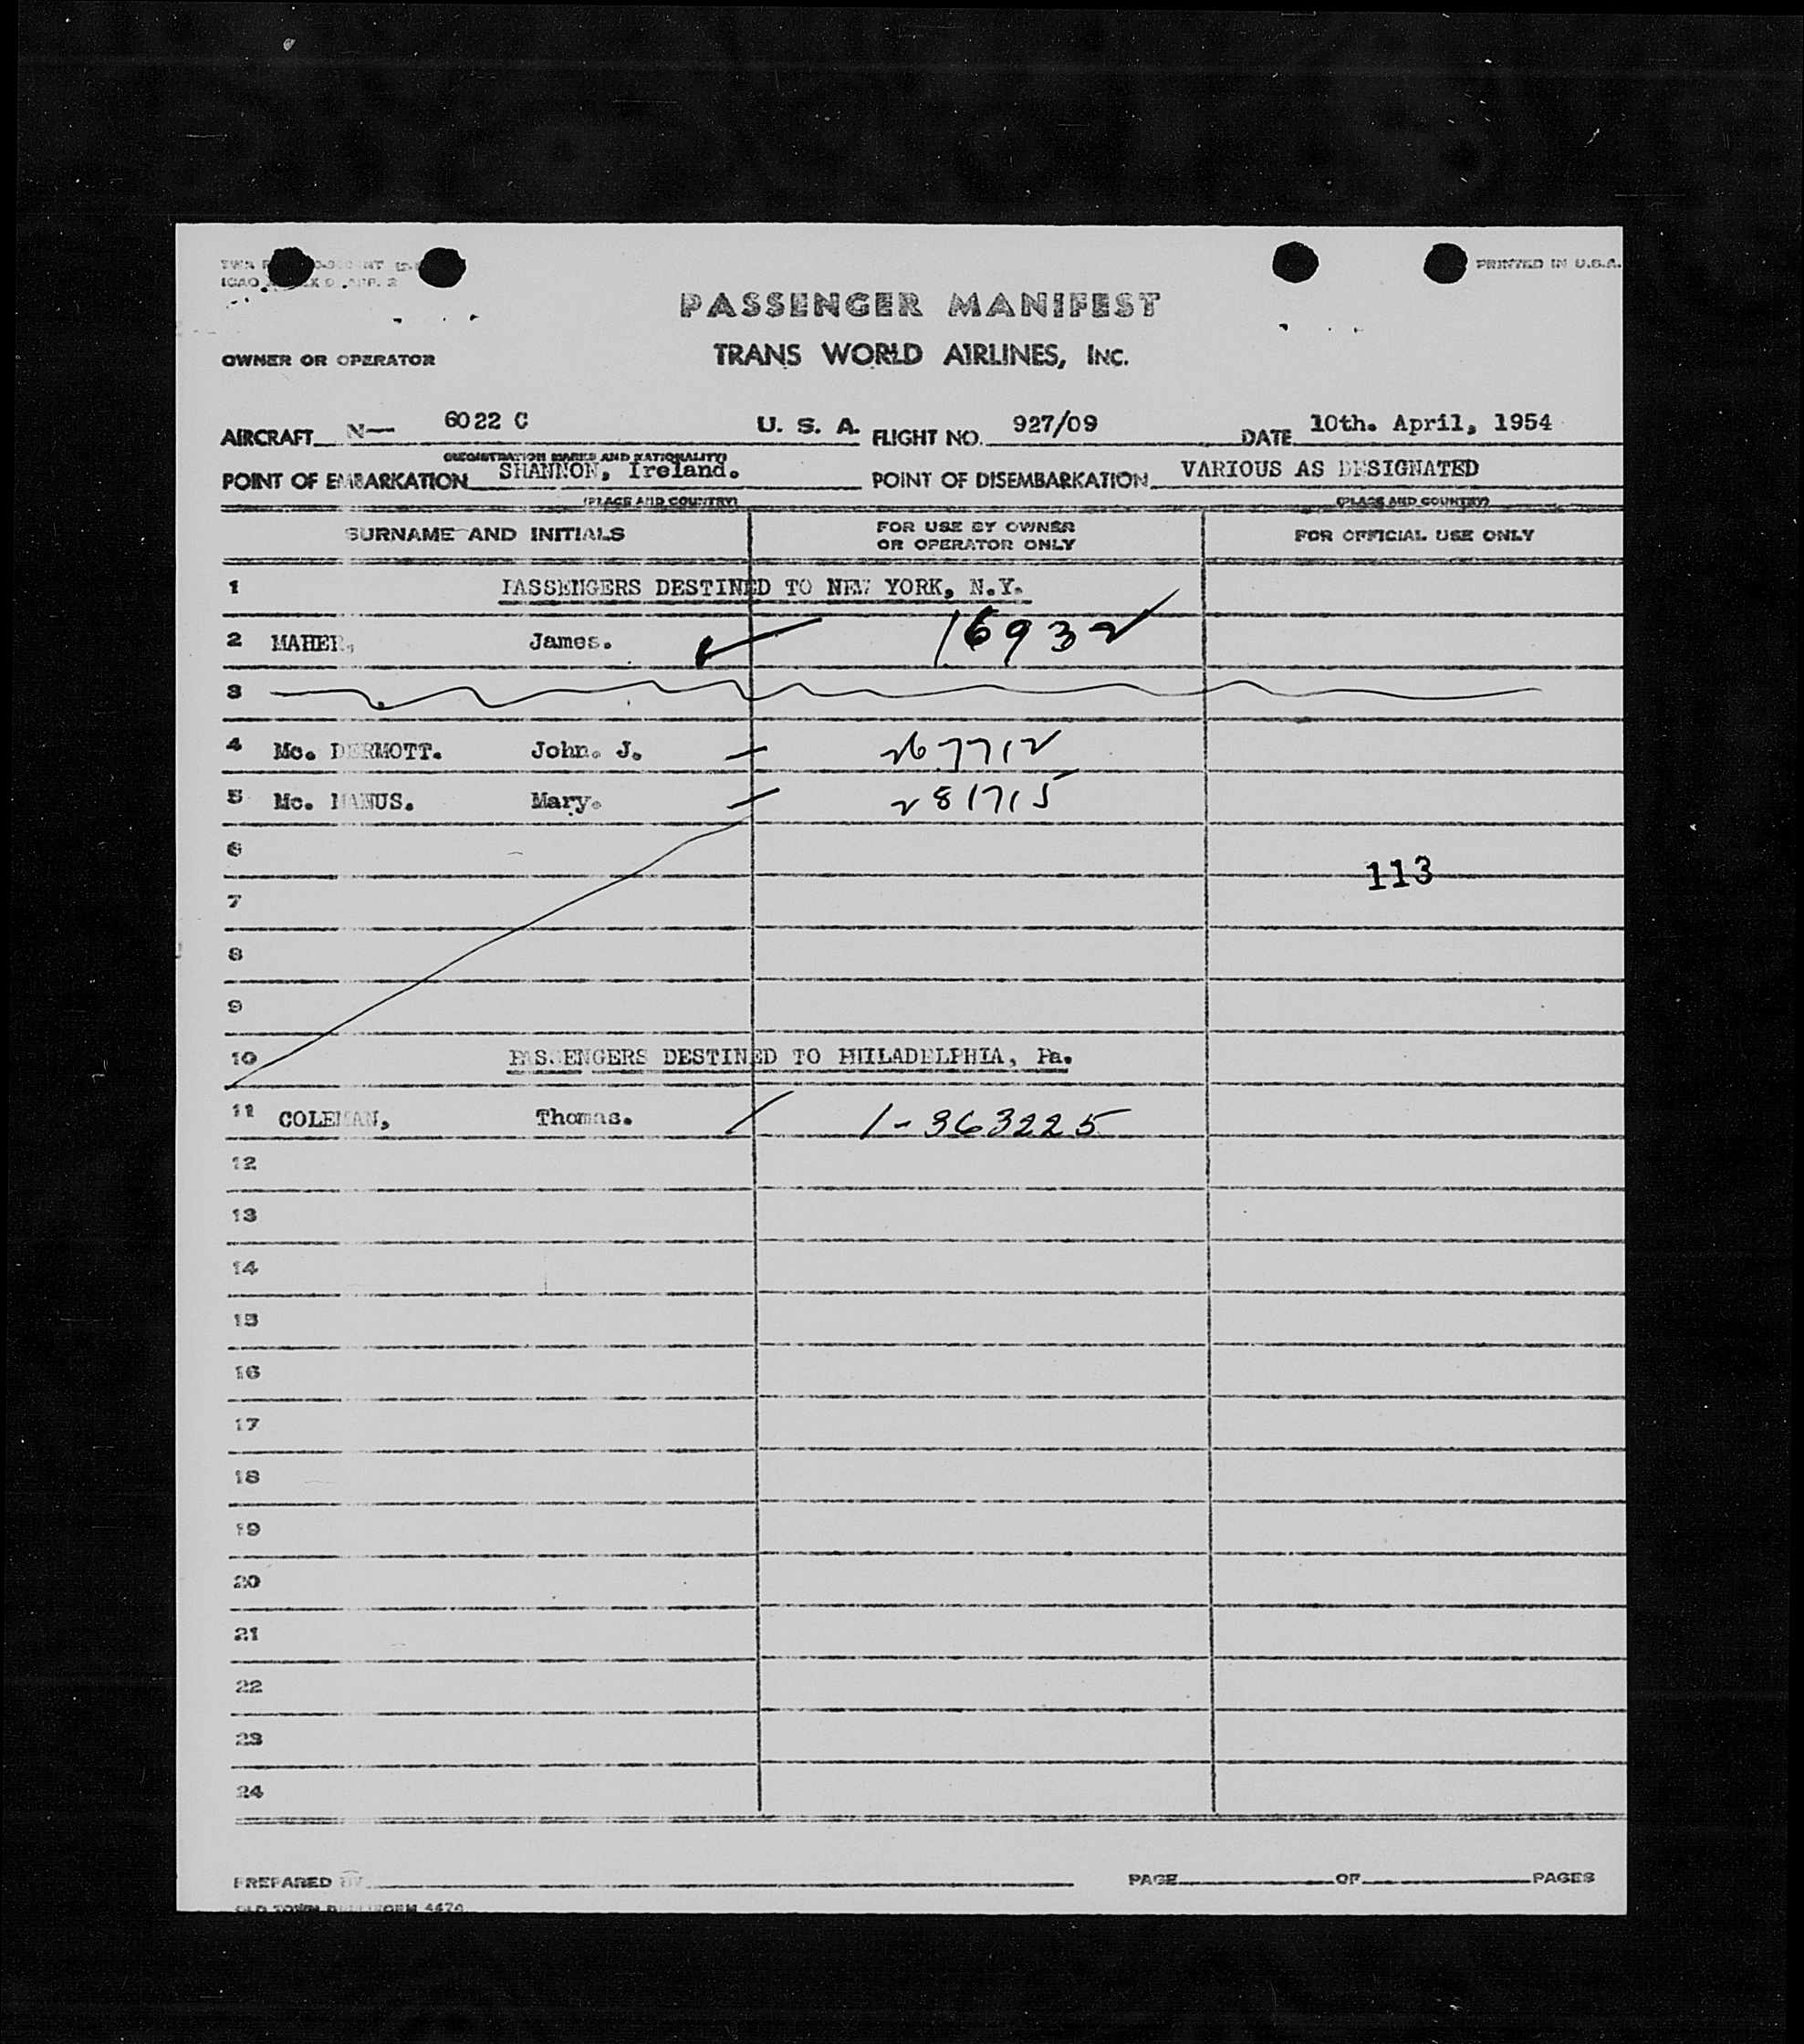 PRINTED IN U.S.A.
PASSENGER MANIFEST
OWNER OR OPERATOR TRANS WORLD AIRLINES, INC.
AIRCRAFT N— 6022 C U. S. A. FLIGHT NO. 927/09 DATE 10th. April, 1954
(REGISTRATION MARKS AND NATIONALITY)
POINT OF EMBARKATION SHANNON, Ireland. POINT OF DISEMBARKATION VARIOUS AS DESIGNATED
(PLACE AND COUNTRY) (PLACE AND COUNTRY)
SURNAME AND INITIALS FOR USE BY OWNER OR OPERATOR ONLY FOR OFFICIAL USE ONLY
1 PASSENGERS DESTINED TO NEW YORK, N.Y.
2 MAHER, James. 16932
3
4 Mc. DERMOTT. John. J. 267712
5 Mc. MANUS. Mary. 281715
6
113
7
8
9
10 PASSENGERS DESTINED TO PHILADELPHIA, Pa.
11 COLEMAN, Thomas. 1-363225
12
13
14
15
16
17
18
19
20
21
22
23
24
PREPARED BY PAGE OF PAGES